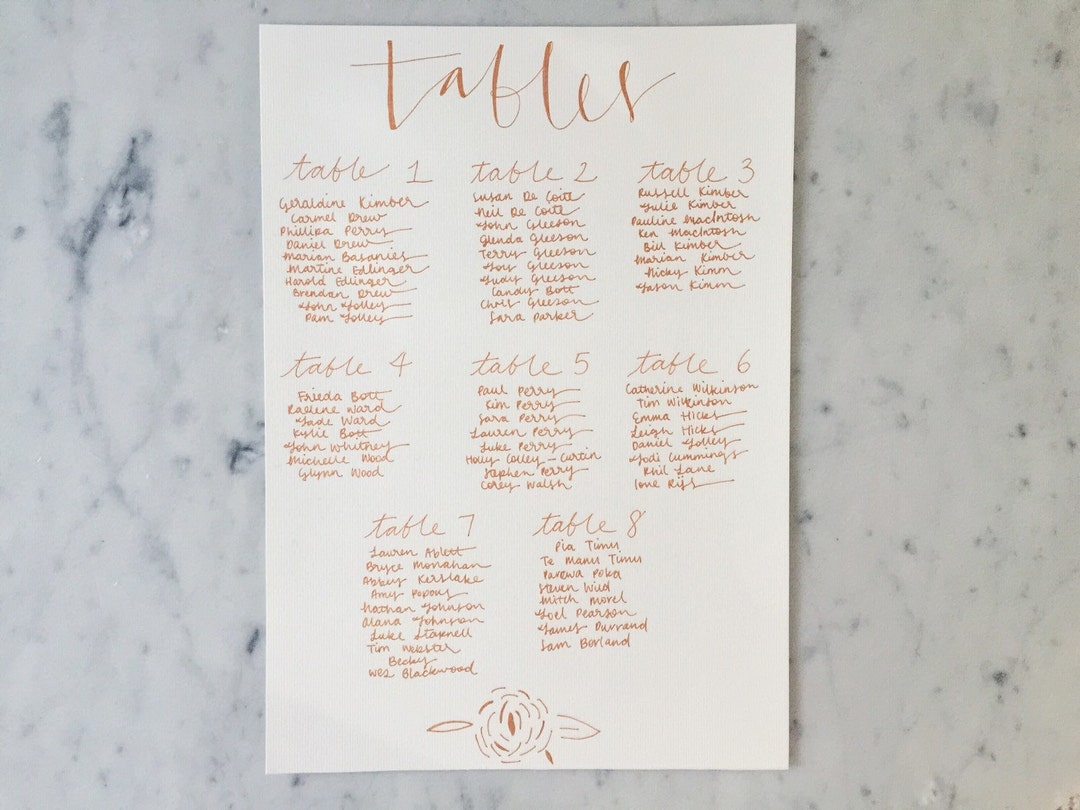 tables
table 1
Geraldine Kimber
Carmel Drew
Phillipa Perry
Daniel Drew
Marian Basanies
Martine Edlinger
Harold Edlinger
Brendan Drew
John Jolley
Pam Jolley
table 2
Susan De Coite
Neil De Coite
John Gleeson
Glenda Gleeson
Terry Gleeson
Joy Gleeson
Judy Gleeson
Candy Bott
Chris Gleeson
Sara Parker
table 3
Russell Kimber
Julie Kimber
Pauline MacIntosh
Ken MacIntosh
Bill Kimber
Marian Kimber
Nicky Kimm
Jason Kimm
table 4
Frieda Bott
Raelene Ward
Jade Ward
Kylie Bott
John Whitney
Michelle Wood
Glynn Wood
table 5
Paul Perry
Kim Perry
Sara Perry
Lauren Perry
Luke Perry
Holly Colley-Curtin
Stephen Perry
Corey Walsh
table 6
Catherine Wilkinson
Tim Wilkinson
Emma Hicks
Leigh Hicks
Daniel Jolley
Jodi Cummings
Phil Lane
Ione Rijs
table 7
Lauren Ablett
Bryce Monahan
Abbey Kerslake
Amy Popous
Nathan Johnson
Alana Johnson
Luke Starnell
Tim Webster
Becky
Wes Blackwood
table 8
Pia Timu
Te Manu Timu
Parewa Poka
Steven Wied
Mitch Morel
Joel Pearson
James Durrand
Sam Borland